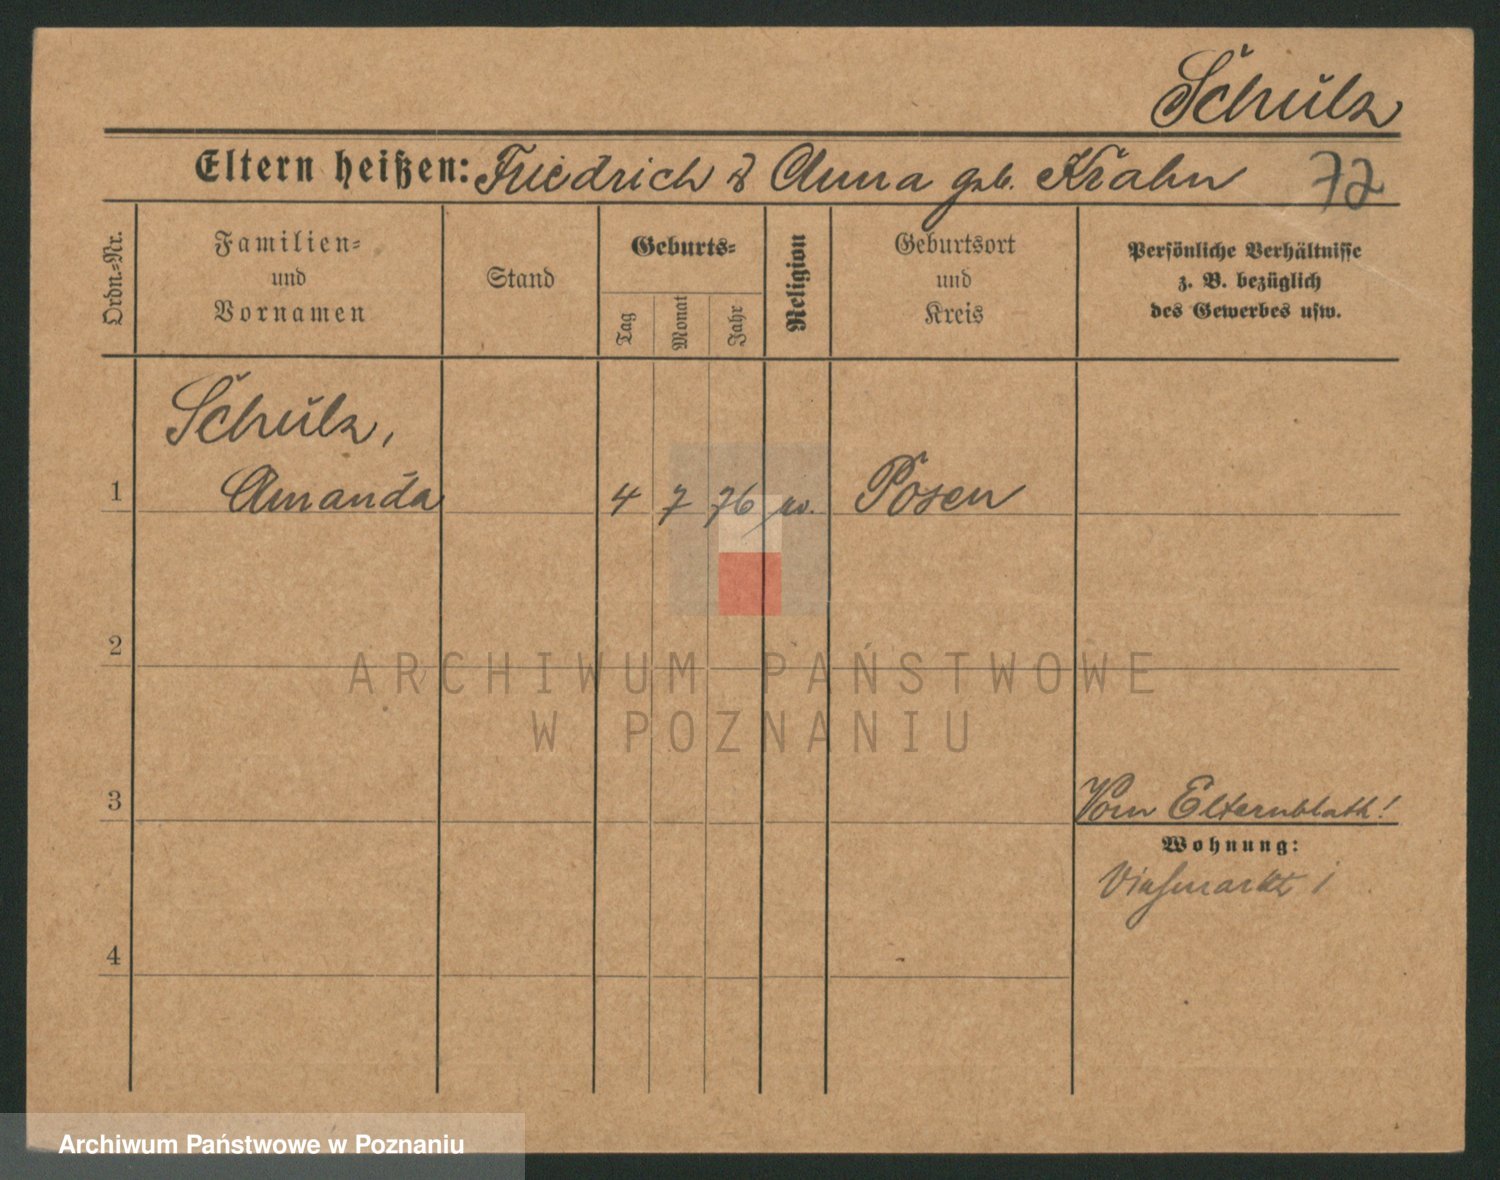 Schulz
Eltern heißen: Friedrich & Anna geb. Krahn 72
Ordn.-Nr.
Familien-
und
Vornamen
Stand
Geburts-
Tag
Monat
Jahr
Religion
Geburtsort
und
Kreis
Persönliche Verhältnisse
z. B. bezüglich
des Gewerbes usw.
Schulz,
1 Amanda 4 7 76 ev. Posen
2
3
Vom Elternblatt!
Wohnung:
Viehmarkt 1
4
ARCHIWUM PAŃSTWOWE
W POZNANIU
Archiwum Państwowe w Poznaniu